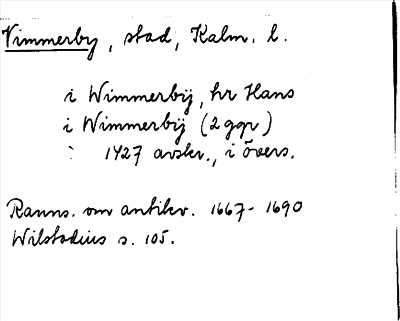 Vimmerby, stad, Kalm. l.
i Wimmerbÿ, hr Hans
i Wimmerbÿ (2 ggr)
: 1427 avskr., i övers.
Ranns. om antikv. 1667-1690
Wilstadius s. 105.